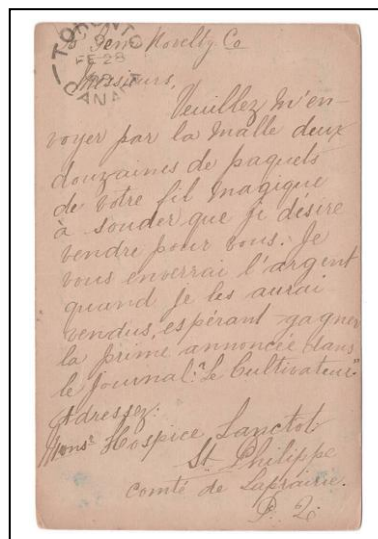 TORONTO
FE 28
CANADA
Gem Novelty Co
Messieurs,
Veuillez m'en-
voyer par la malle deux
douzaines de paquets
de votre fil magique
à souder que je désire
vendre pour vous. Je
vous enverrai l'argent
quand je les aurai
vendus, espérant gagner
la prime annoncée dans
le journal: "Le Cultivateur"
Adressez:
Mons Hospice Lanctot
St Philippe
comté de Laprairie.
P. Q.